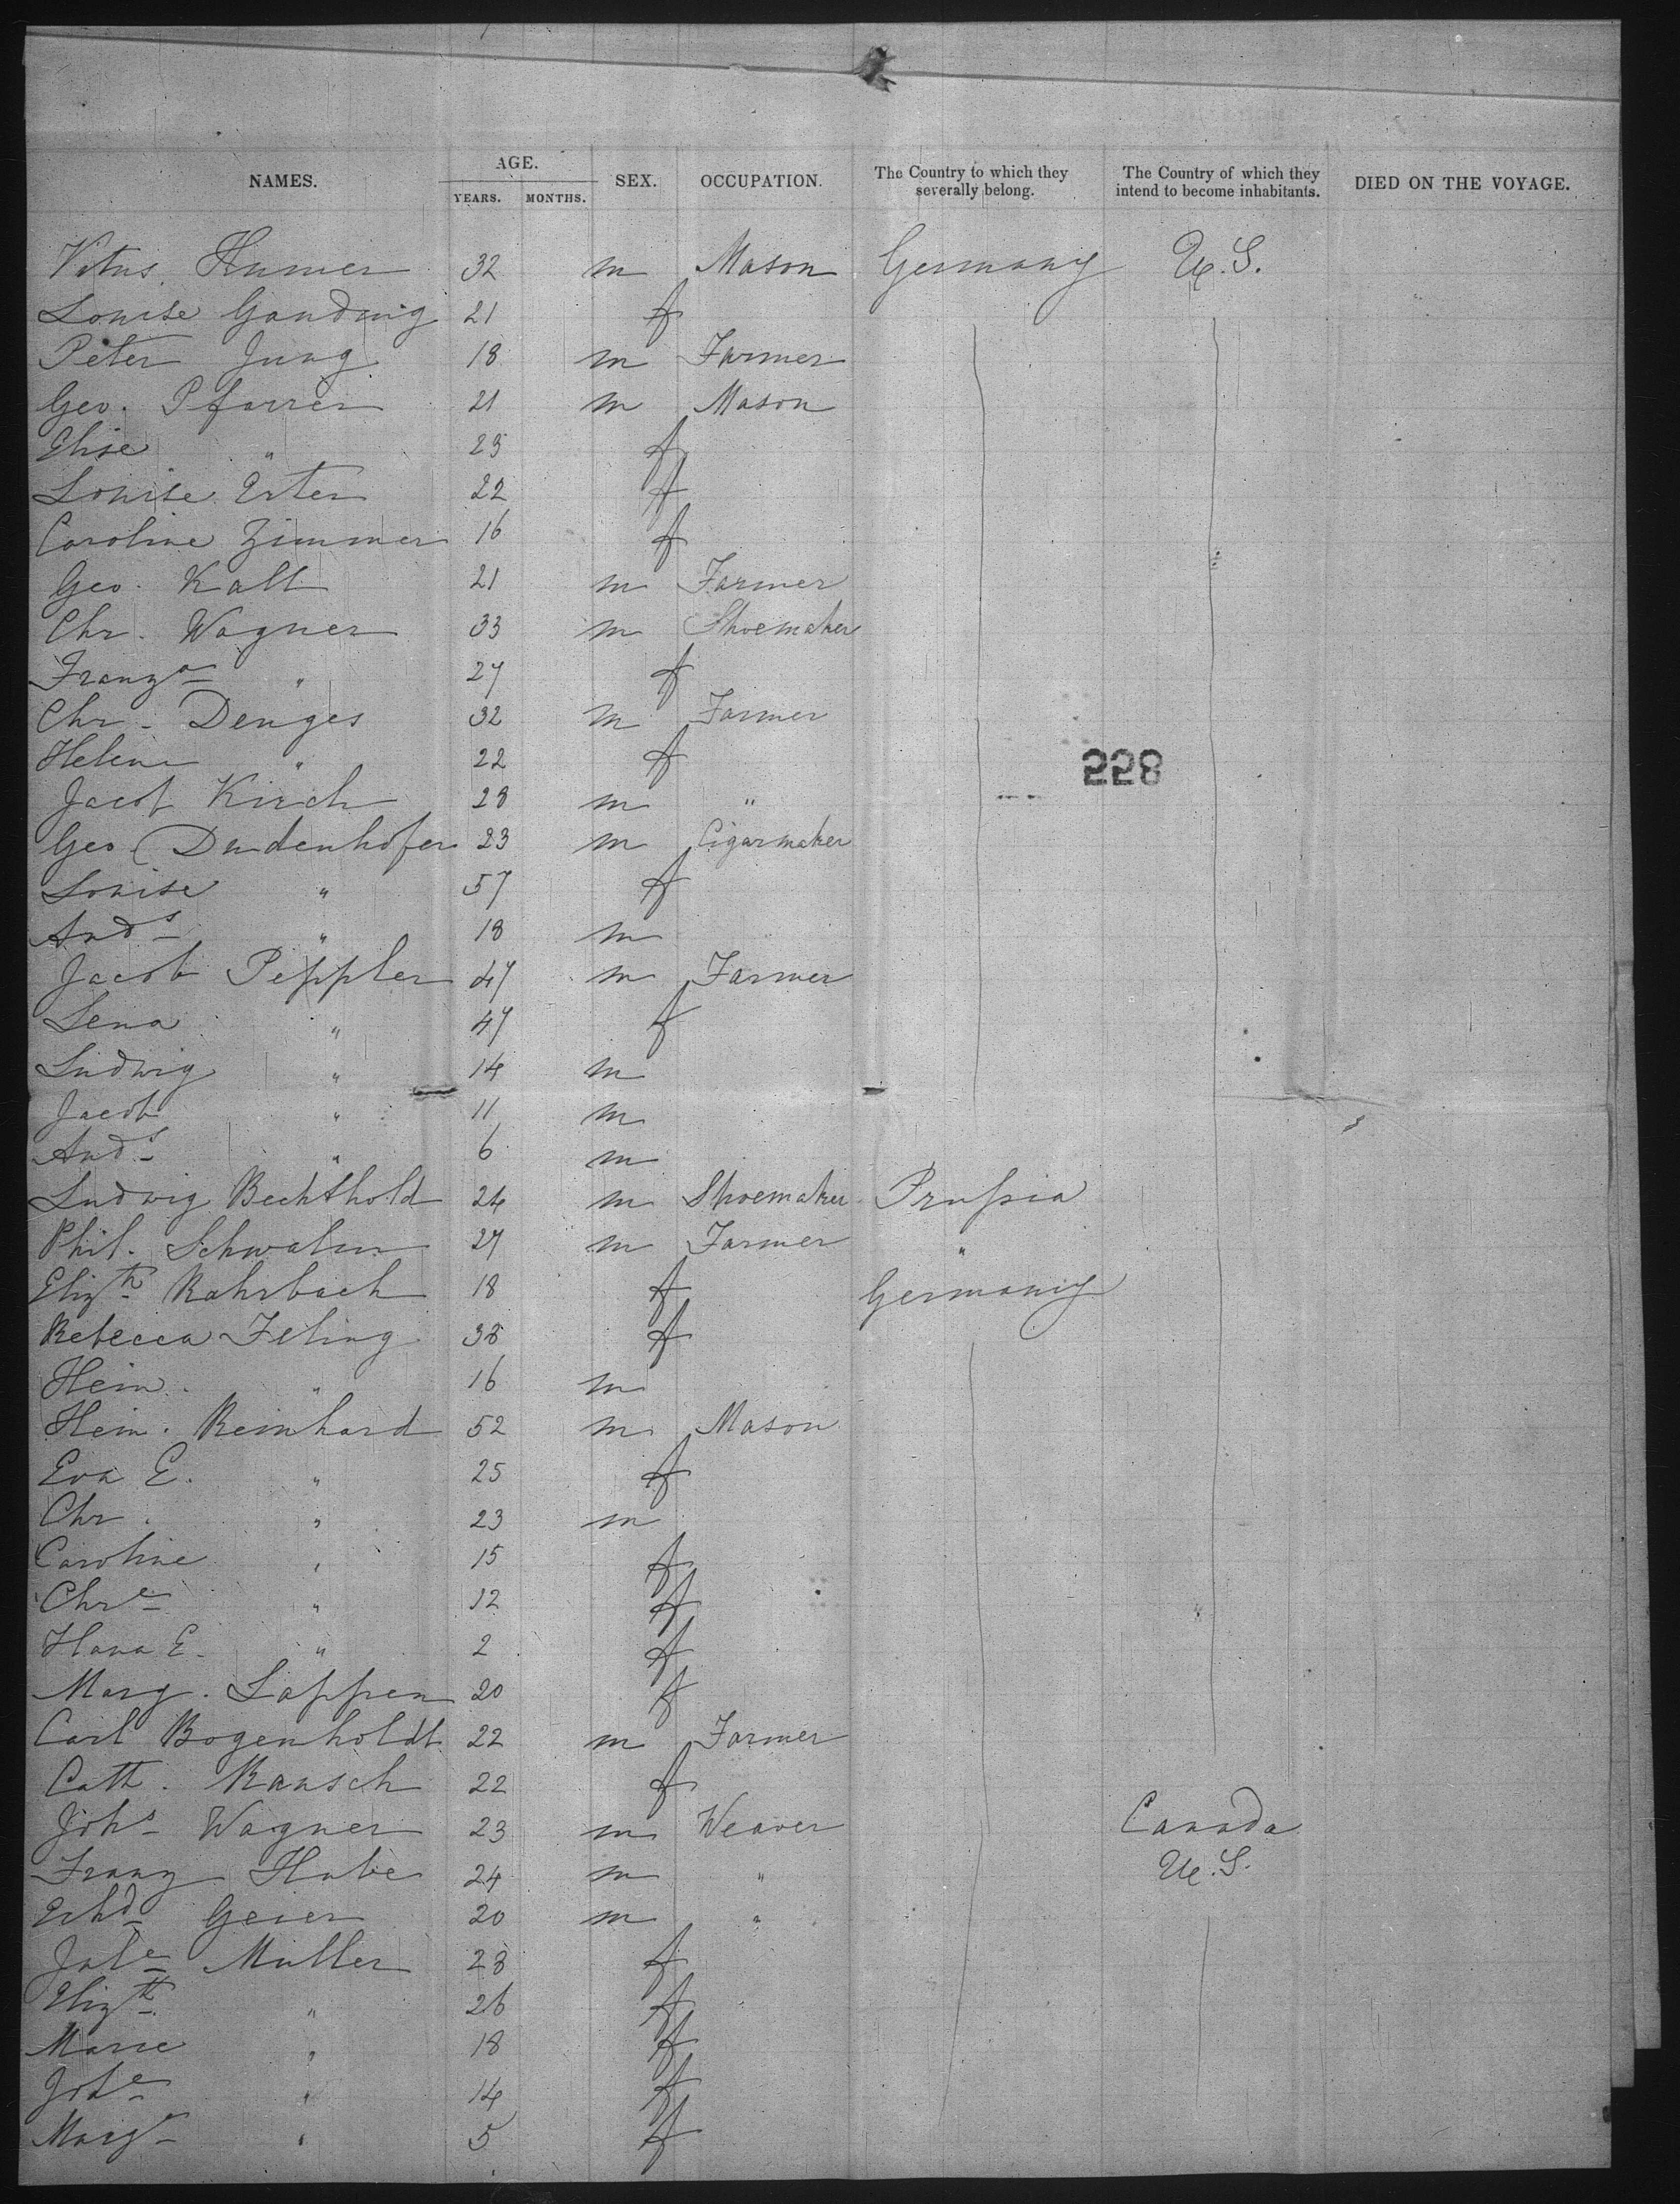 NAMES. AGE. YEARS. MONTHS. SEX. OCCUPATION. The Country to which they severally belong. The Country of which they intend to become inhabitants. DIED ON THE VOYAGE.
Vitus Humer 32 m Mason Germany U.S.
Louise Gandwig 21 f
Peter Jung 18 m Farmer
Geo. Pfarrer 21 m Mason
Elise " 23 f
Louise Erter 22 f
Caroline Zimmer 16 f
Geo. Kalt 21 m Farmer
Chr. Wagner 33 m Shoemaker
Franza " 27 f
Chr. Denges 32 m Farmer
Helene " 22 f
228
Jacob Kirch 28 m "
Geo Dudenhofer 23 m Cigarmaker
Louise " 57 f
Ands " 18 m
Jacob Peppler 47 m Farmer
Lena " 47 f
Ludwig " 14 m
Jacob " 11 m
Ands " 6 m
Ludwig Bechthold 24 m Shoemaker Prussia
Phil. Schwalm 27 m Farmer "
Elizth Rohrbach 18 f Germany
Rebecca Feling 38 f
Hein. " 16 m
Hein. Reinhard 52 m Mason
Eva E. " 25 f
Chr. " 23 m
Caroline " 15 f
Chre " 12 f
E. " 2 f
Marg. Lappen 20 f
Carl Bogenholdt 22 m Farmer
Cath. Rausch 22 f
Johs Wagner 23 m Weaver Canada
Franz Hube 24 m " U.S.
Erhd Geier 20 m "
Muller 28 f
Elizth " 26 f
Marie " 18 f
" 14 f
Marg " 5 f